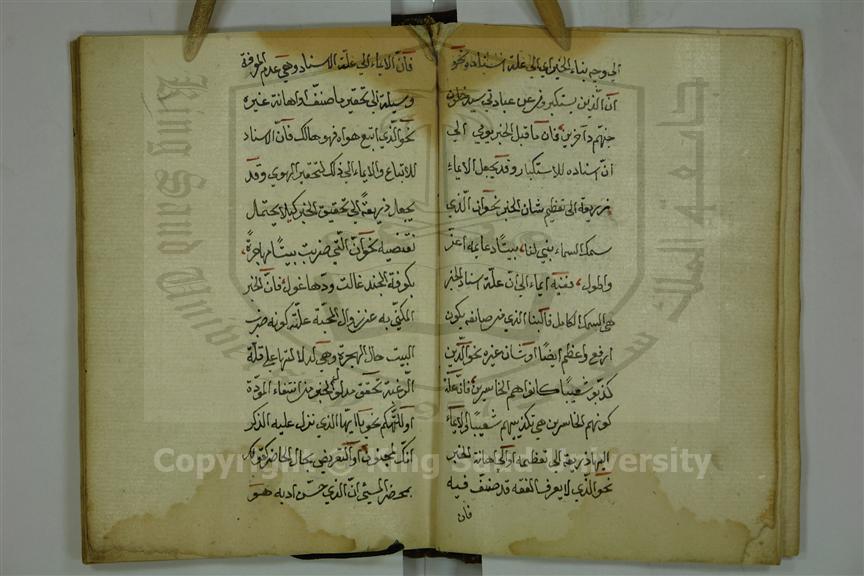 الى وجه بناء الخبر اى الى علة اسناده نحو
ان الذين يستكبرون عن عبادتي سيدخلون
جهنم داخرين فان ما قبل الخبر يومي الى
ان اسناده للاستكبار وقد يجعل الايماء
ذريعة الى تعظيم شان الخبر نحو ان الذي
سمك السماء بنى لنا بيتا دعايمه اعز
واطول ففيه ايماء الى ان علة اسناد الخبر
هي السمك الكامل فالبنا الذي صانعه يكون
ارفع واعظم ايضا او شان غيره نحو الذين
كذبوا شعيبا كانوا هم الخاسرين فان علة
كونهم الخاسرين هي تكذيبهم شعيبا والايماء
اليها ذريعة الى تعظيمه او الى اهانة الخبر
نحو الذي لا يعرف الفقه قد صنف فيه
فان
فان الايماء الى علة الاسناد وهي عدم المعرفة
وسيلة الى تحقير ما صنف او اهانة غيره
نحو الذي اتبع هواه فهو هالك فان الاسناد
للاتباع والايماء الى ذلك لتحقير الهوى وقد
يجعل ذريعة الى تحقيق الخبر كيلا يحتمل
نقيضه نحو ان التي ضربت بيتا مهاجرة
بكوفة الجند غالت ودها غول فان الخبر
المكنى به عن زوال المحبة علته كونه ضرب
البيت حال الهجرة وهي لدلالتها على قلة
الرغبة تحقق مدلول الخبر من انتفاء المودة
او للتهكم نحو يا ايها الذي نزل عليه الذكر
انك لمجنون او التعريض بحال الحاضر
بمحضر المسئ ان الذي حسن ادبه هو
جامعة الملك سعود
King Saud University
Copyright © King Saud University